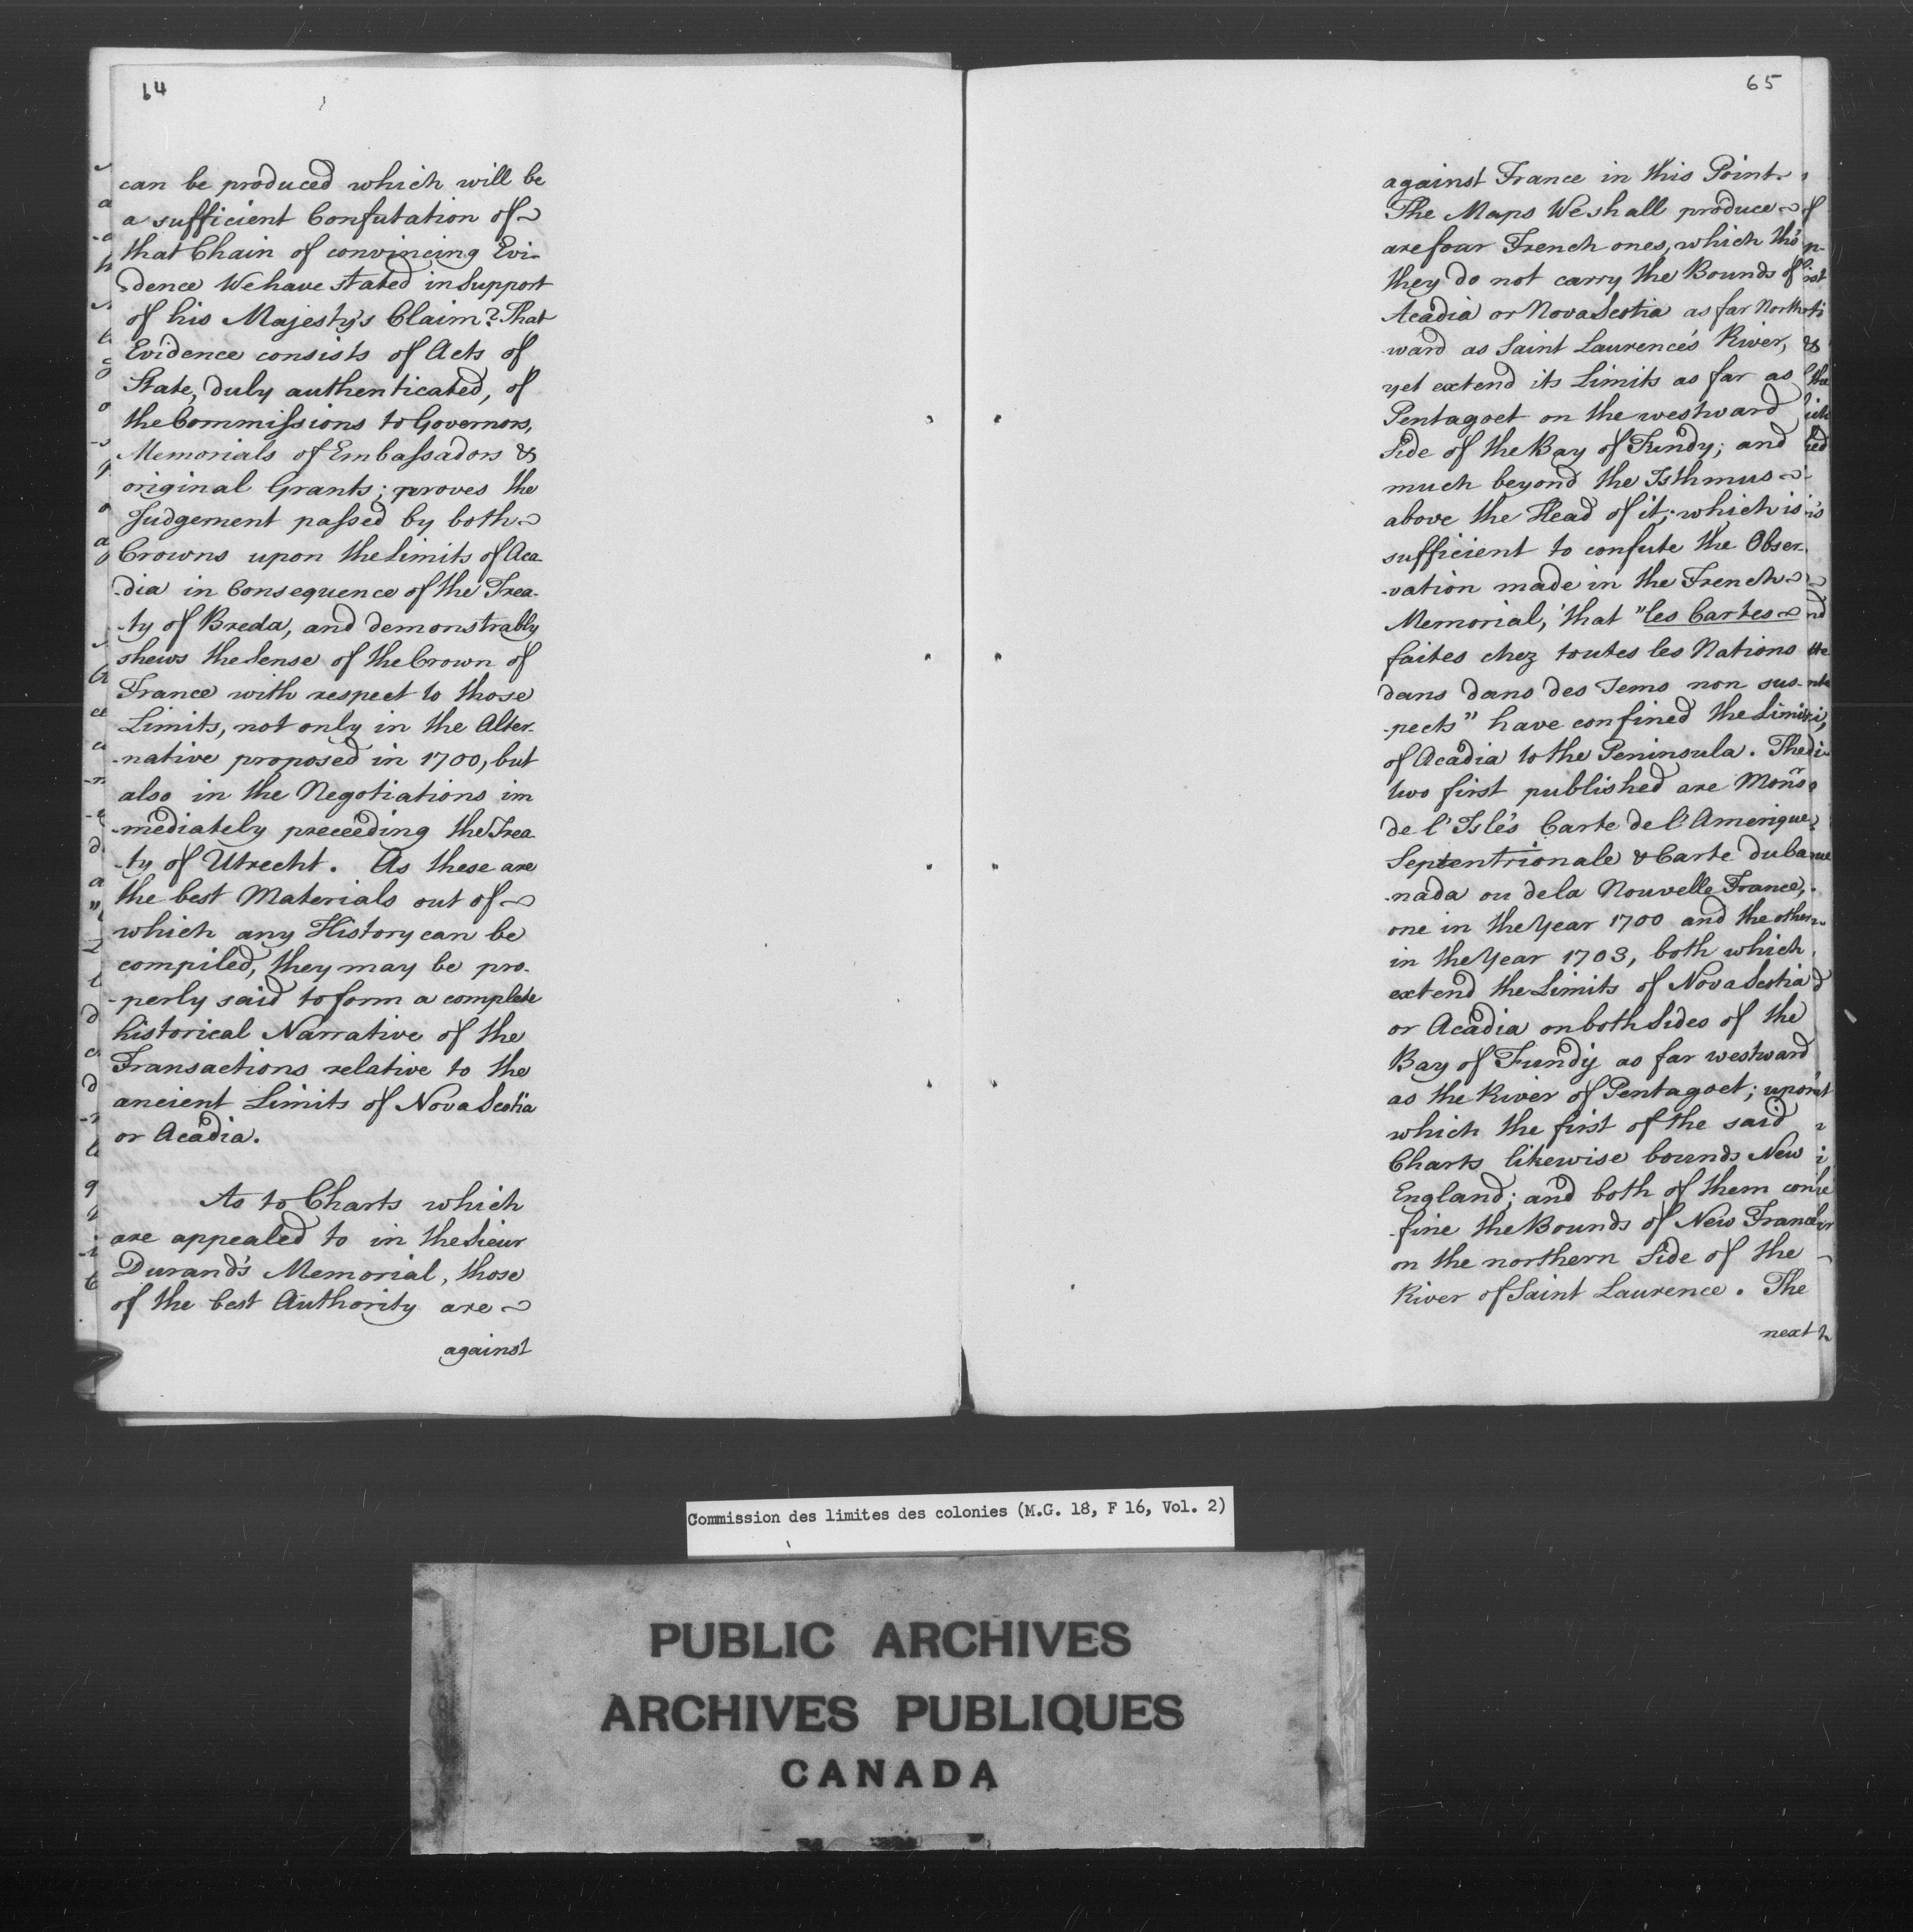 64
can be produced which will be
a sufficient Confutation of
that Chain of convincing Evi-
-dence We have stated in Support
of his Majesty's Claim? That
Evidence consists of Acts of
State, duly authenticated, of
the Commissions to Governors,
Memorials of Embassadors &
original Grants; proves the
Judgement passed by both
Crowns upon the Limits of Aca-
-dia in Consequence of the Trea-
-ty of Breda, and demonstrably
shews the Sense of the Crown of
France with respect to those
Limits, not only in the Alter-
-native proposed in 1700, but
also in the Negotiations im
-mediately preceeding the Trea-
-ty of Utrecht. As these are
the best Materials out of
which any History can be
compiled, they may be pro-
-perly said to form a complete
historical Narrative of the
Transactions relative to the
ancient Limits of Nova Scotia
or Acadia.
As to Charts which
are appealed to in the Sieur
Durand's Memorial, those
of the best Authority are
against
65
against France in this Point.
The Maps We shall produce
are four French ones, which tho'
they do not carry the Bounds of
Acadia or Nova Scotia as far North-
-ward as Saint Laurence's River,
yet extend its Limits as far as
Pentagoet on the westward
Side of the Bay of Fundy; and
much beyond the Isthmus
above the Head of it; which is
sufficient to confute the Obser-
-vation made in the French
Memorial, that "les Cartes
faites chez toutes les Nations
dans dans des Tems non sus-
-pects" have confined the Limits
of Acadia to the Peninsula. The
two first published are Monsr
de l'Isle's Carte de l'Amerique
Septentrionale & Carte du Ca
-nada ou de la Nouvelle France,
one in the Year 1700 and the other
in the Year 1703, both which
extend the Limits of Nova Scotia
or Acadia on both Sides of the
Bay of Fundy as far westward
as the River of Pentagoet; upon
which the first of the said
Charts likewise bounds New
England; and both of them con-
-fine the Bounds of New France
on the northern Side of the
River of Saint Laurence. The
next
Commission des limites des colonies (M.G. 18, F 16, Vol. 2)
PUBLIC ARCHIVES
ARCHIVES PUBLIQUES
CANADA